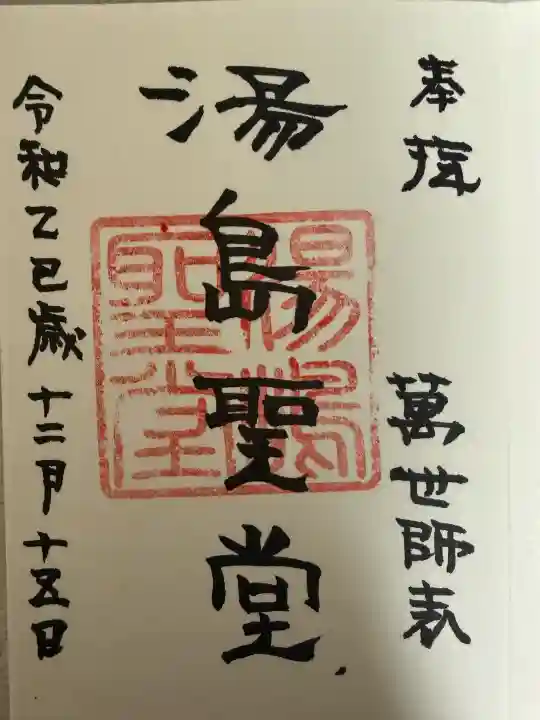 奉拝
萬世師表
湯島聖堂
湯島聖堂
令和乙巳歳十二月十五日